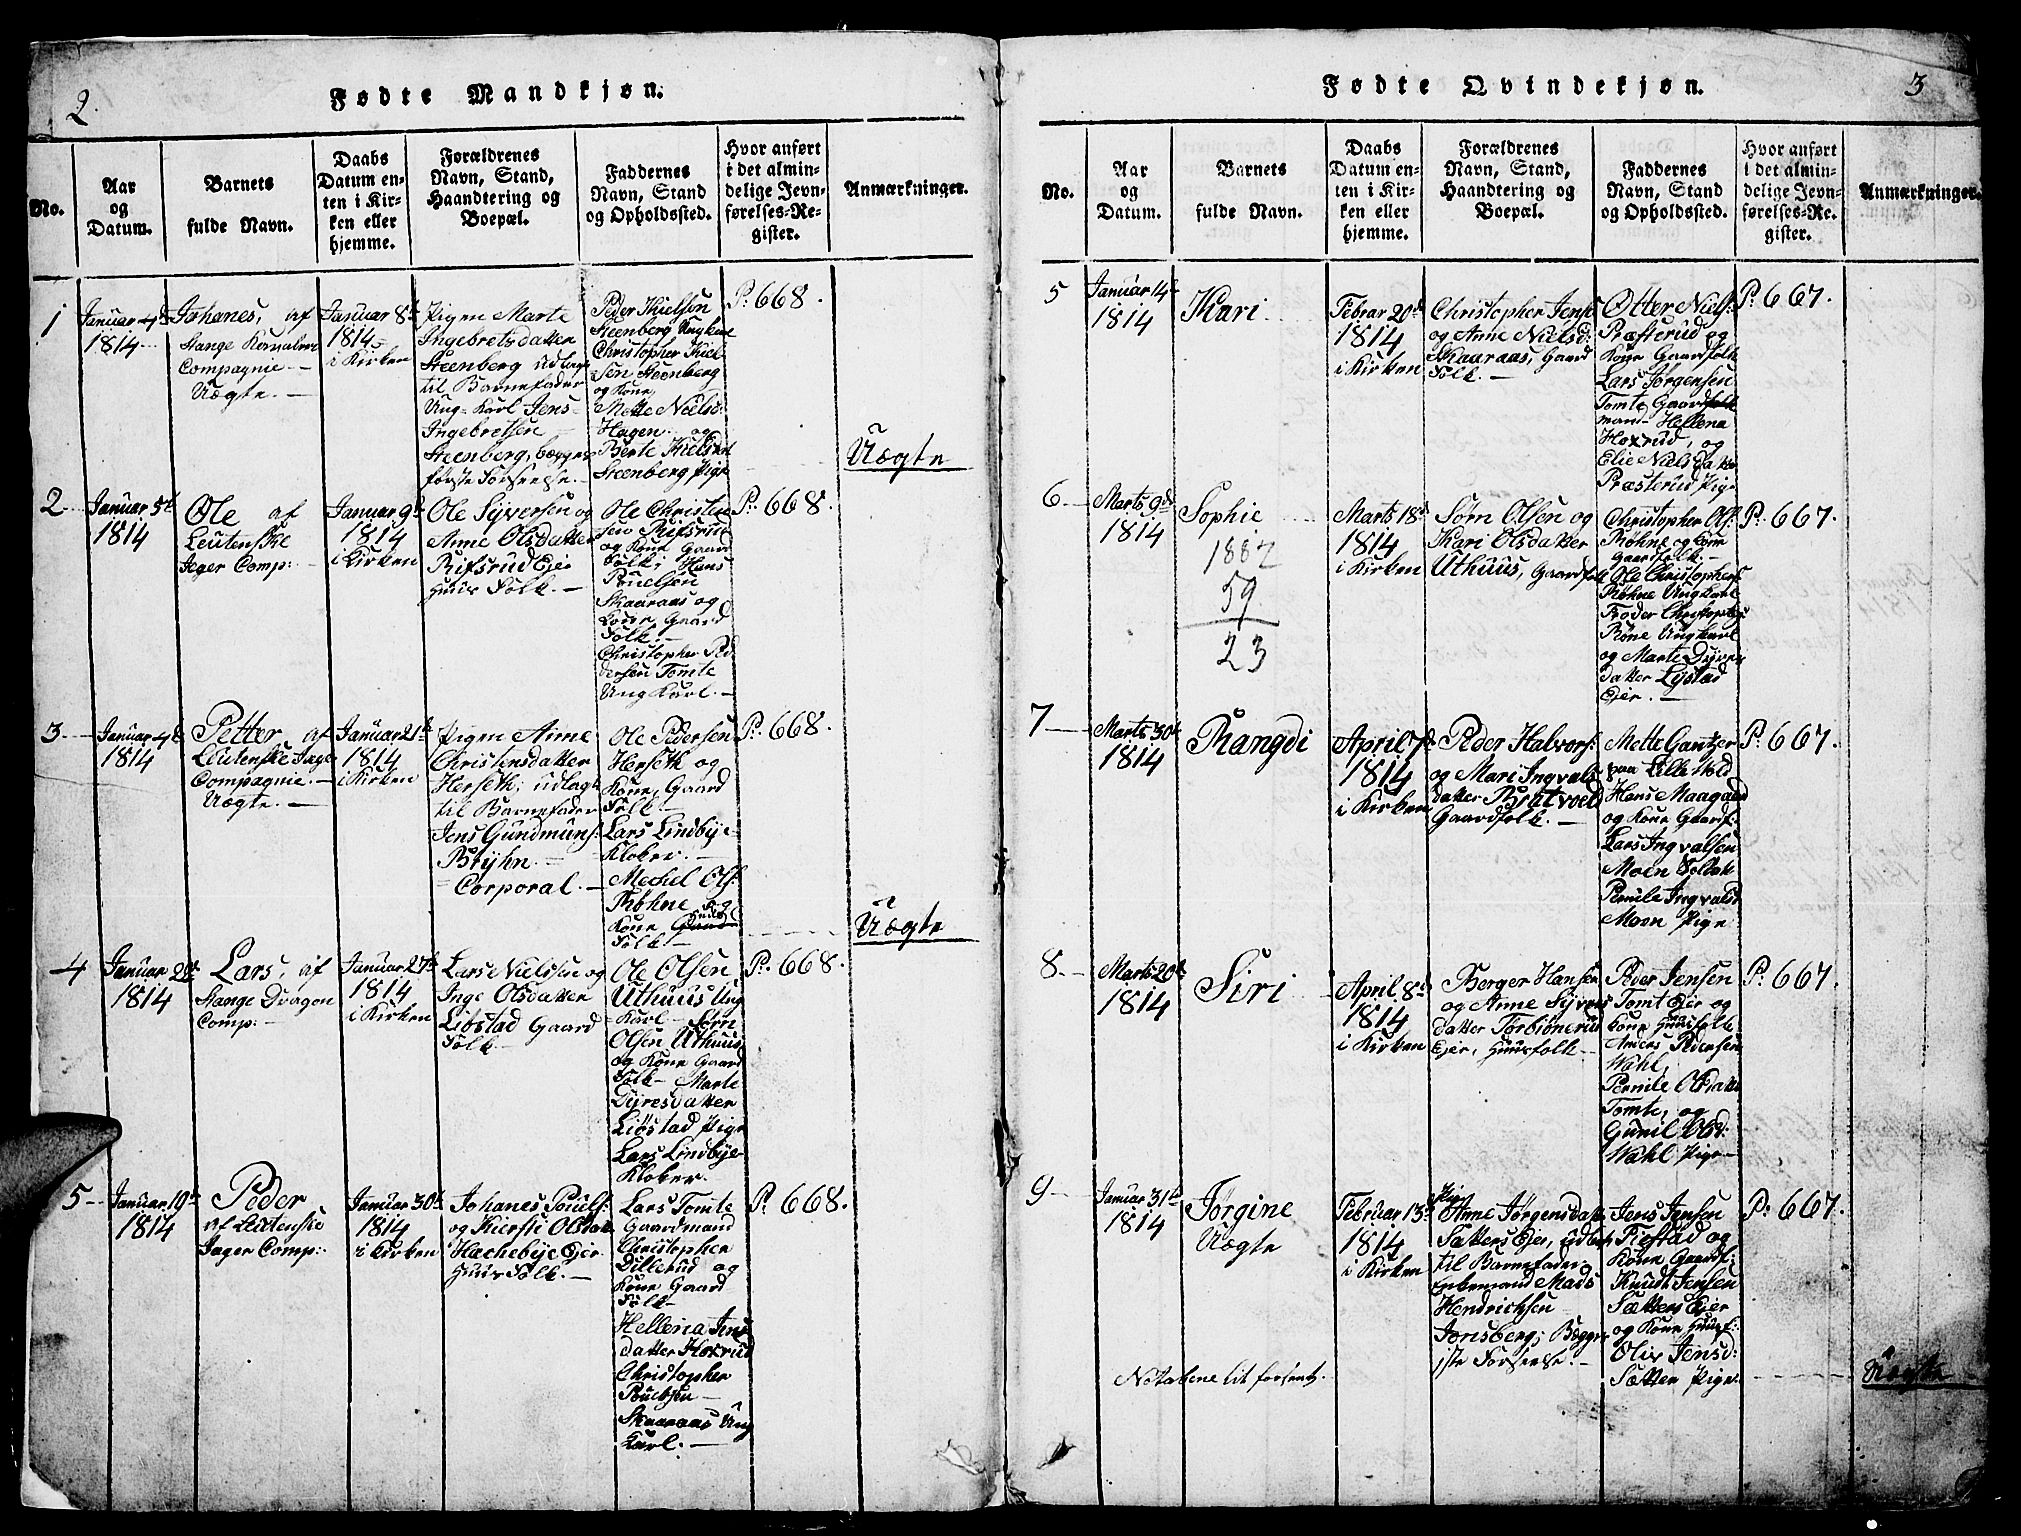 2.
Fødte Mandkjøn.
No.
Aar
og
Datum.
Barnets
fulde Navn.
Daabs
Datum en-
ten i Kir-
ken eller
hjemme.
Forældrenes
Navn, Stand,
Haandtering og
Boepæl.
Faddernes
Navn, Stand
og Opholdssted.
Hvor anført
i det almin-
delige Jevn-
førelses-Re-
gister.
Anmærkninger.
1
Januar 4d
1814
Johanes, af
Stange
Compagnie
Uægte.
Januar 8d
1814
i Kirken
Pigen Marte
Ingebretsdatter
Steenberg udlagt
til Barnefader
Ung-Karl Jens
Ingebretsen
Steenberg, begges
første Forseelse.
Peder
Steenberg Ungkarl
Christopher
Steenberg
og Kone
Mette Nielsd:
Hagen og
Berte
Steenberg Pige
P: 668.
Uægte
2
Januar 5d
1814
Ole af
Leutenske
Jeger Comp:
Januar 9d
1814
i Kirken
Ole Syversen og
Anne Olsdatter
Rifsrud Ejer
Huus Folk.
Ole Christen-
sen Rifsrud
og Kone Gaard
Folk; Hans
Pouelsen
Skaaraas og
Kone Gaard
Folk.
Christopher Pe-
dersen Tomte
Ung Karl.
P: 668.
3
Januar 4d
1814
Petter af
Leutenske Jæger
Compagnie.
Uægte.
Januar 21d
1814
i Kirken
Pigen Anne
Christensdatter
Herseth; udlagt
til Barnefader
Jens Gundmuns:
Bryhn.
Corporal.
Ole Pedersen
Herseth og
Kone, Gaard
Folk
Lars Lindbye
Klober.
Mechel Ols:
Røhne og
Kone
Folk
P: 668.
Uægte
4
Januar
1814
Lars, af
Stange Dragon
Comp:
Januar 27d
1814
i Kirken
Lars Nielssen og
Inge Olsdatter
Liøstad Gaard
Folk
Ole Olsen
Uthuus Ung
Karl Sørn
Olsen Uthuus
og Kone Gaard
Folk Marte
Dyresdatter
Liøstad Pige
Lars Lindbye
Klober.
P: 668.
5
Januar 19d
1814
Peder
af Leutenske
Jager Comp:
Januar 30d
1814
i Kirken
Johanes Pouels:
og Kiersti Olsdat
Hachebye Ejer
Huus Folk.
Lars Tomte
Gaardmand
Christopher
Dillerud og
Kone Gaard
Folk
Hellena Jens
datter Hoxrud
Christopher
Pouelsen
Skaaraas Ung
Karl.
P: 668.
3
Fødte Qvindekjøn.
No.
Aar
og
Datum.
Barnets
fulde Navn.
Daabs
Datum en-
ten i Kir-
ken eller
hjemme.
Forældrenes
Navn, Stand,
Haandtering og
Boepæl.
Faddernes
Navn, Stand
og Opholdssted.
Hvor anført
i det almin-
delige Jevn-
førelses-Re-
gister.
Anmærkninger.
5
Januar 14
1814
Kari
Febrar 20d
1814
i Kirken
Christopher Jens
og Anne Nielsd:
Skaaraas, Gaard
Folk.
Otter Niels:
Præsterud og
Kone Gaardfolk
Lars Jørgensen
Tomte, Gaard
man Hellena
Hoxrud, og
Elie Nielsdatter
Præsterud Pige
P: 667.
6
Marts 9d
1814
Sophie
1882
59
23
Marts 18d
1814
i Kirken
Sørn Olsen og
Kari Olsdatter
Uthuus, Gaardfolk
Christopher Ols:
Røhne og kone
Gaardfolk.
Ole Christophers
Røhne Ungkarl
Peder Christophers
Røne Ungkarl
og Marte Dyres
datter Lystad
Ejer.
P: 667.
7
Marts 30d
1814
Rangdi
April 7d
1814
i Kirken
Peder Halvors:
og Mari Ingvals
datter Bratvold
Gaardfolk.
Mette Gantzer
paa Lille Vold
Hans Maagaard
og Kone Gaardf:
Lars Ingvalsen
Moen Soldat
Pernile Ingvalsd
Moen Pige
P: 667.
8
Marts 20d
1814
Siri
April 8d
1814
i Kirken
Berger Hansen
og Anne Syvers
datter Torbiønerud
Ejer, Huusfolk
Peder Jensen
Tomt Ejer og
Kone Huusfolk
Anders Pedersen
Wahl,
Pernile Olsdatt
Tomte, og
Gunil Olsd:
Wahl Pige
P: 667.
9
Januar 31d
1814
Jørgine
Uægte
Februar 13d
1814
i Kirken
Pig
Anne Jørgensdatt
Sætters Ejer, udlagt
til Barnefader
Enkemand Mads
Hendrichsen
Jonsberg; Begges
1ste Forseelse.
Jens Jensen
Fiestad og
Kone Gaardf:
Knudt Jensen
Sætters Ejer
og Kone Huusf:
Oliv Jensd:
Sætter Pige
P: 667.
Notabene lit forsent.
Uægte